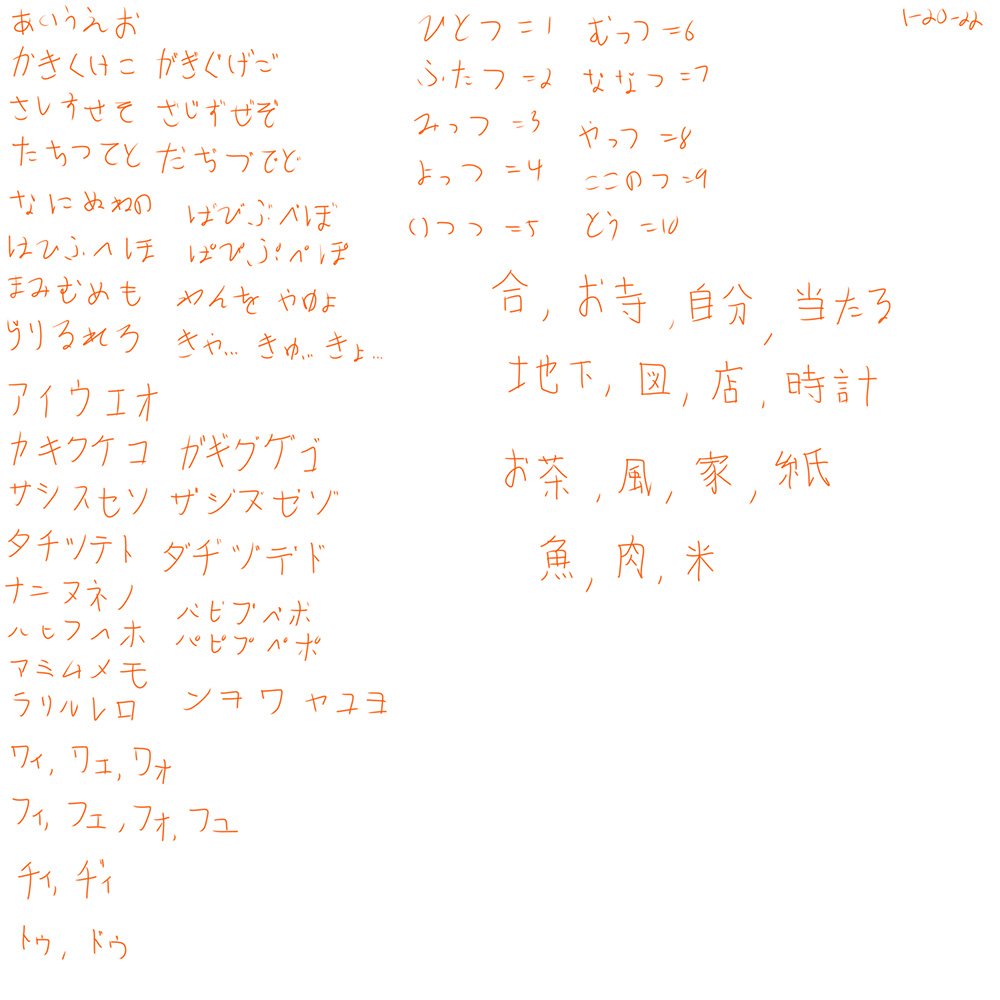 あいうえお
かきくけこ がぎぐげご
さしすせそ ざじずぜぞ
たちつてと だぢづでど
なにぬねの
はひふへほ ばびぶべぼ
ぱぴぷぺぽ
まみむめも わんを やゆよ
らりるれろ きゃ... きゅ... きょ...
アイウエオ
カキクケコ ガギグゲゴ
サシスセソ ザジズゼゾ
タチツテト ダヂヅデド
ナニヌネノ
ハヒフヘホ バビブベボ
パピプペポ
マミムメモ
ラリルレロ ンヲワ ヤユヨ
ワィ, ワェ, ワォ
フィ, フェ, フォ, フュ
チィ, ヂィ
トゥ, ドゥ
ひとつ=1 むっつ=6
ふたつ=2 ななつ=7
みっつ=3 やっつ=8
よっつ=4 ここのつ=9
いつつ=5 とう=10
合, お寺, 自分, 当たる
地下, 図, 店, 時計
お茶, 風, 家, 紙
魚, 肉, 米
1-20-22